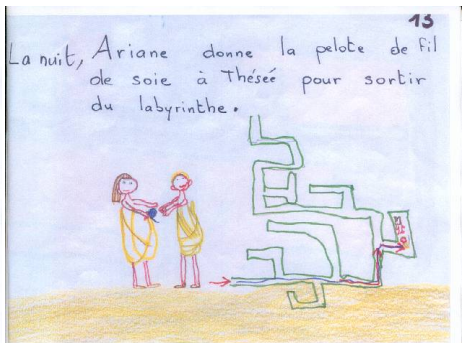 13
La nuit, Ariane donne la pelote de fil
de soie à Théséé pour sortir
du labyrinthe.